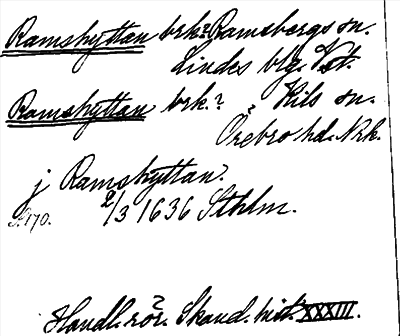 Ramshyttan brk? Ramsbergs sn.
Lindes blg. Vst.
Ramshyttan brk.? Kils sn.
Örebro hd. Nrk.
j Ramshyttan?
S. 170. 2/3 1636 Sthlm.
Handl. rör. Skand. hist. XXXIII.